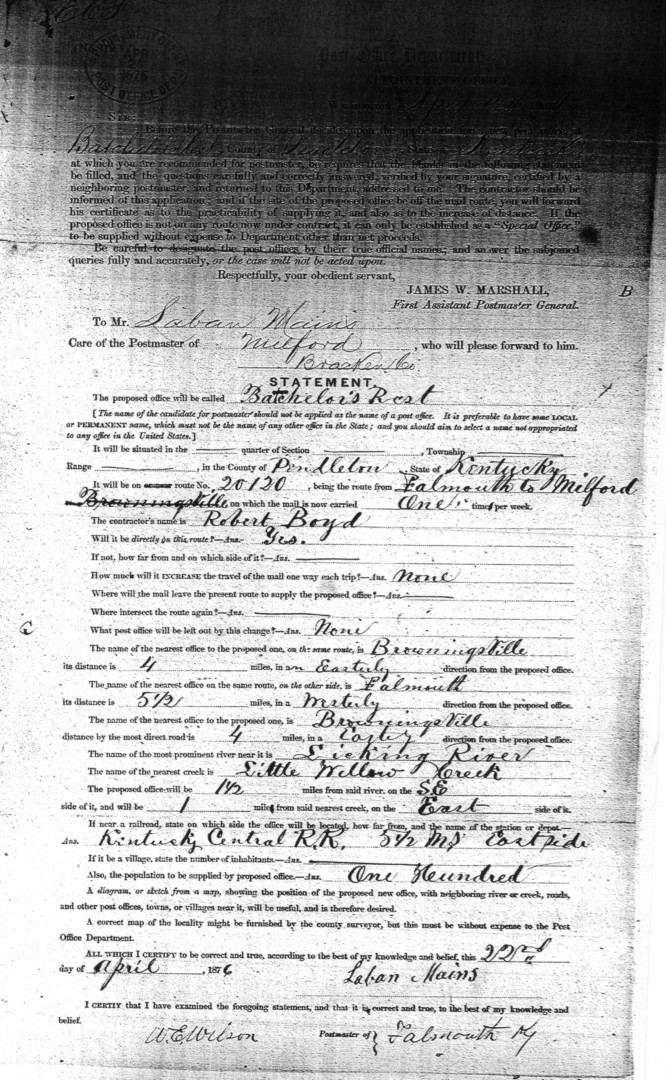 Post Office Department,
APPOINTMENT OFFICE,
APR
1876
SIR:
Before the Postmaster General decides upon the application for a new post office at
County of
at which you are recommended for postmaster, he requires that the blanks in the following statement
be filled, and the questions carefully and correctly answered, verified by your signature, certified by a
neighboring postmaster, and returned to this Department, addressed to me. The contractor should be
informed of this application; and if the site of the proposed office be off the mail route, you will forward
his certificate as to the practicability of supplying it, and also as to the increase of distance. If the
proposed office is not on any route now under contract, it can only be established as a "Special Office,"
to be supplied without expense to Department other than net proceeds.
Be careful to designate the post offices by their true official names; and answer the subjoined
queries fully and accurately, or the case will not be acted upon.
Respectfully, your obedient servant,
JAMES W. MARSHALL, B
First Assistant Postmaster General.
To Mr. Laban Mains
Care of the Postmaster of Milford, who will please forward to him.
Bracken Co.
STATEMENT.
The proposed office will be called Batchelor's Rest
[The name of the candidate for postmaster should not be applied as the name of a post office. It is preferable to have some LOCAL
or PERMANENT name, which must not be the name of any other office in the State; and you should aim to select a name not appropriated
to any office in the United States.]
It will be situated in the quarter of Section, Township
Range, in the County of Pendleton, State of Kentucky
It will be on route No. 20120, being the route from Falmouth to Milford
Browningsville, on which the mail is now carried One times per week.
The contractor's name is Robert Boyd
Will it be directly on this route?—Ans. Yes.
If not, how far from and on which side of it?—Ans.
How much will it INCREASE the travel of the mail one way each trip?—Ans. None
Where will the mail leave the present route to supply the proposed office?—Ans.
Where intersect the route again?—Ans.
What post office will be left out by this change?—Ans. None
The name of the nearest office to the proposed one, on the same route, is Browningsville
its distance is 4 miles, in an Easterly direction from the proposed office.
The name of the nearest office on the same route, on the other side, is Falmouth
its distance is 5 1/2 miles, in a Westerly direction from the proposed office.
The name of the nearest office to the proposed one, is Browningsville
distance by the most direct road is 4 miles, in a direction from the proposed office.
The name of the most prominent river near it is Licking River
The name of the nearest creek is Little Willow Creek
The proposed office will be 1 1/2 miles from said river, on the S.E
side of it, and will be 1 miles from said nearest creek, on the East side of it.
If near a railroad, state on which side the office will be located, how far from, and the name of the station or depot.
Ans. Kintucky Central R.R. 5 1/2 Ms East side
If it be a village, state the number of inhabitants.—Ans.
Also, the population to be supplied by proposed office.—Ans. One Hundred
A diagram, or sketch from a map, showing the position of the proposed new office, with neighboring river or creek, roads,
and other post offices, towns, or villages near it, will be useful, and is therefore desired.
A correct map of the locality might be furnished by the county surveyor, but this must be without expense to the Post
Office Department.
ALL WHICH I CERTIFY to be correct and true, according to the best of my knowledge and belief, this 22nd
day of April, 1876 Laban Mains
I CERTIFY that I have examined the foregoing statement, and that it is correct and true, to the best of my knowledge and
belief.
W.E. Wilson Postmaster of Falmouth Ky